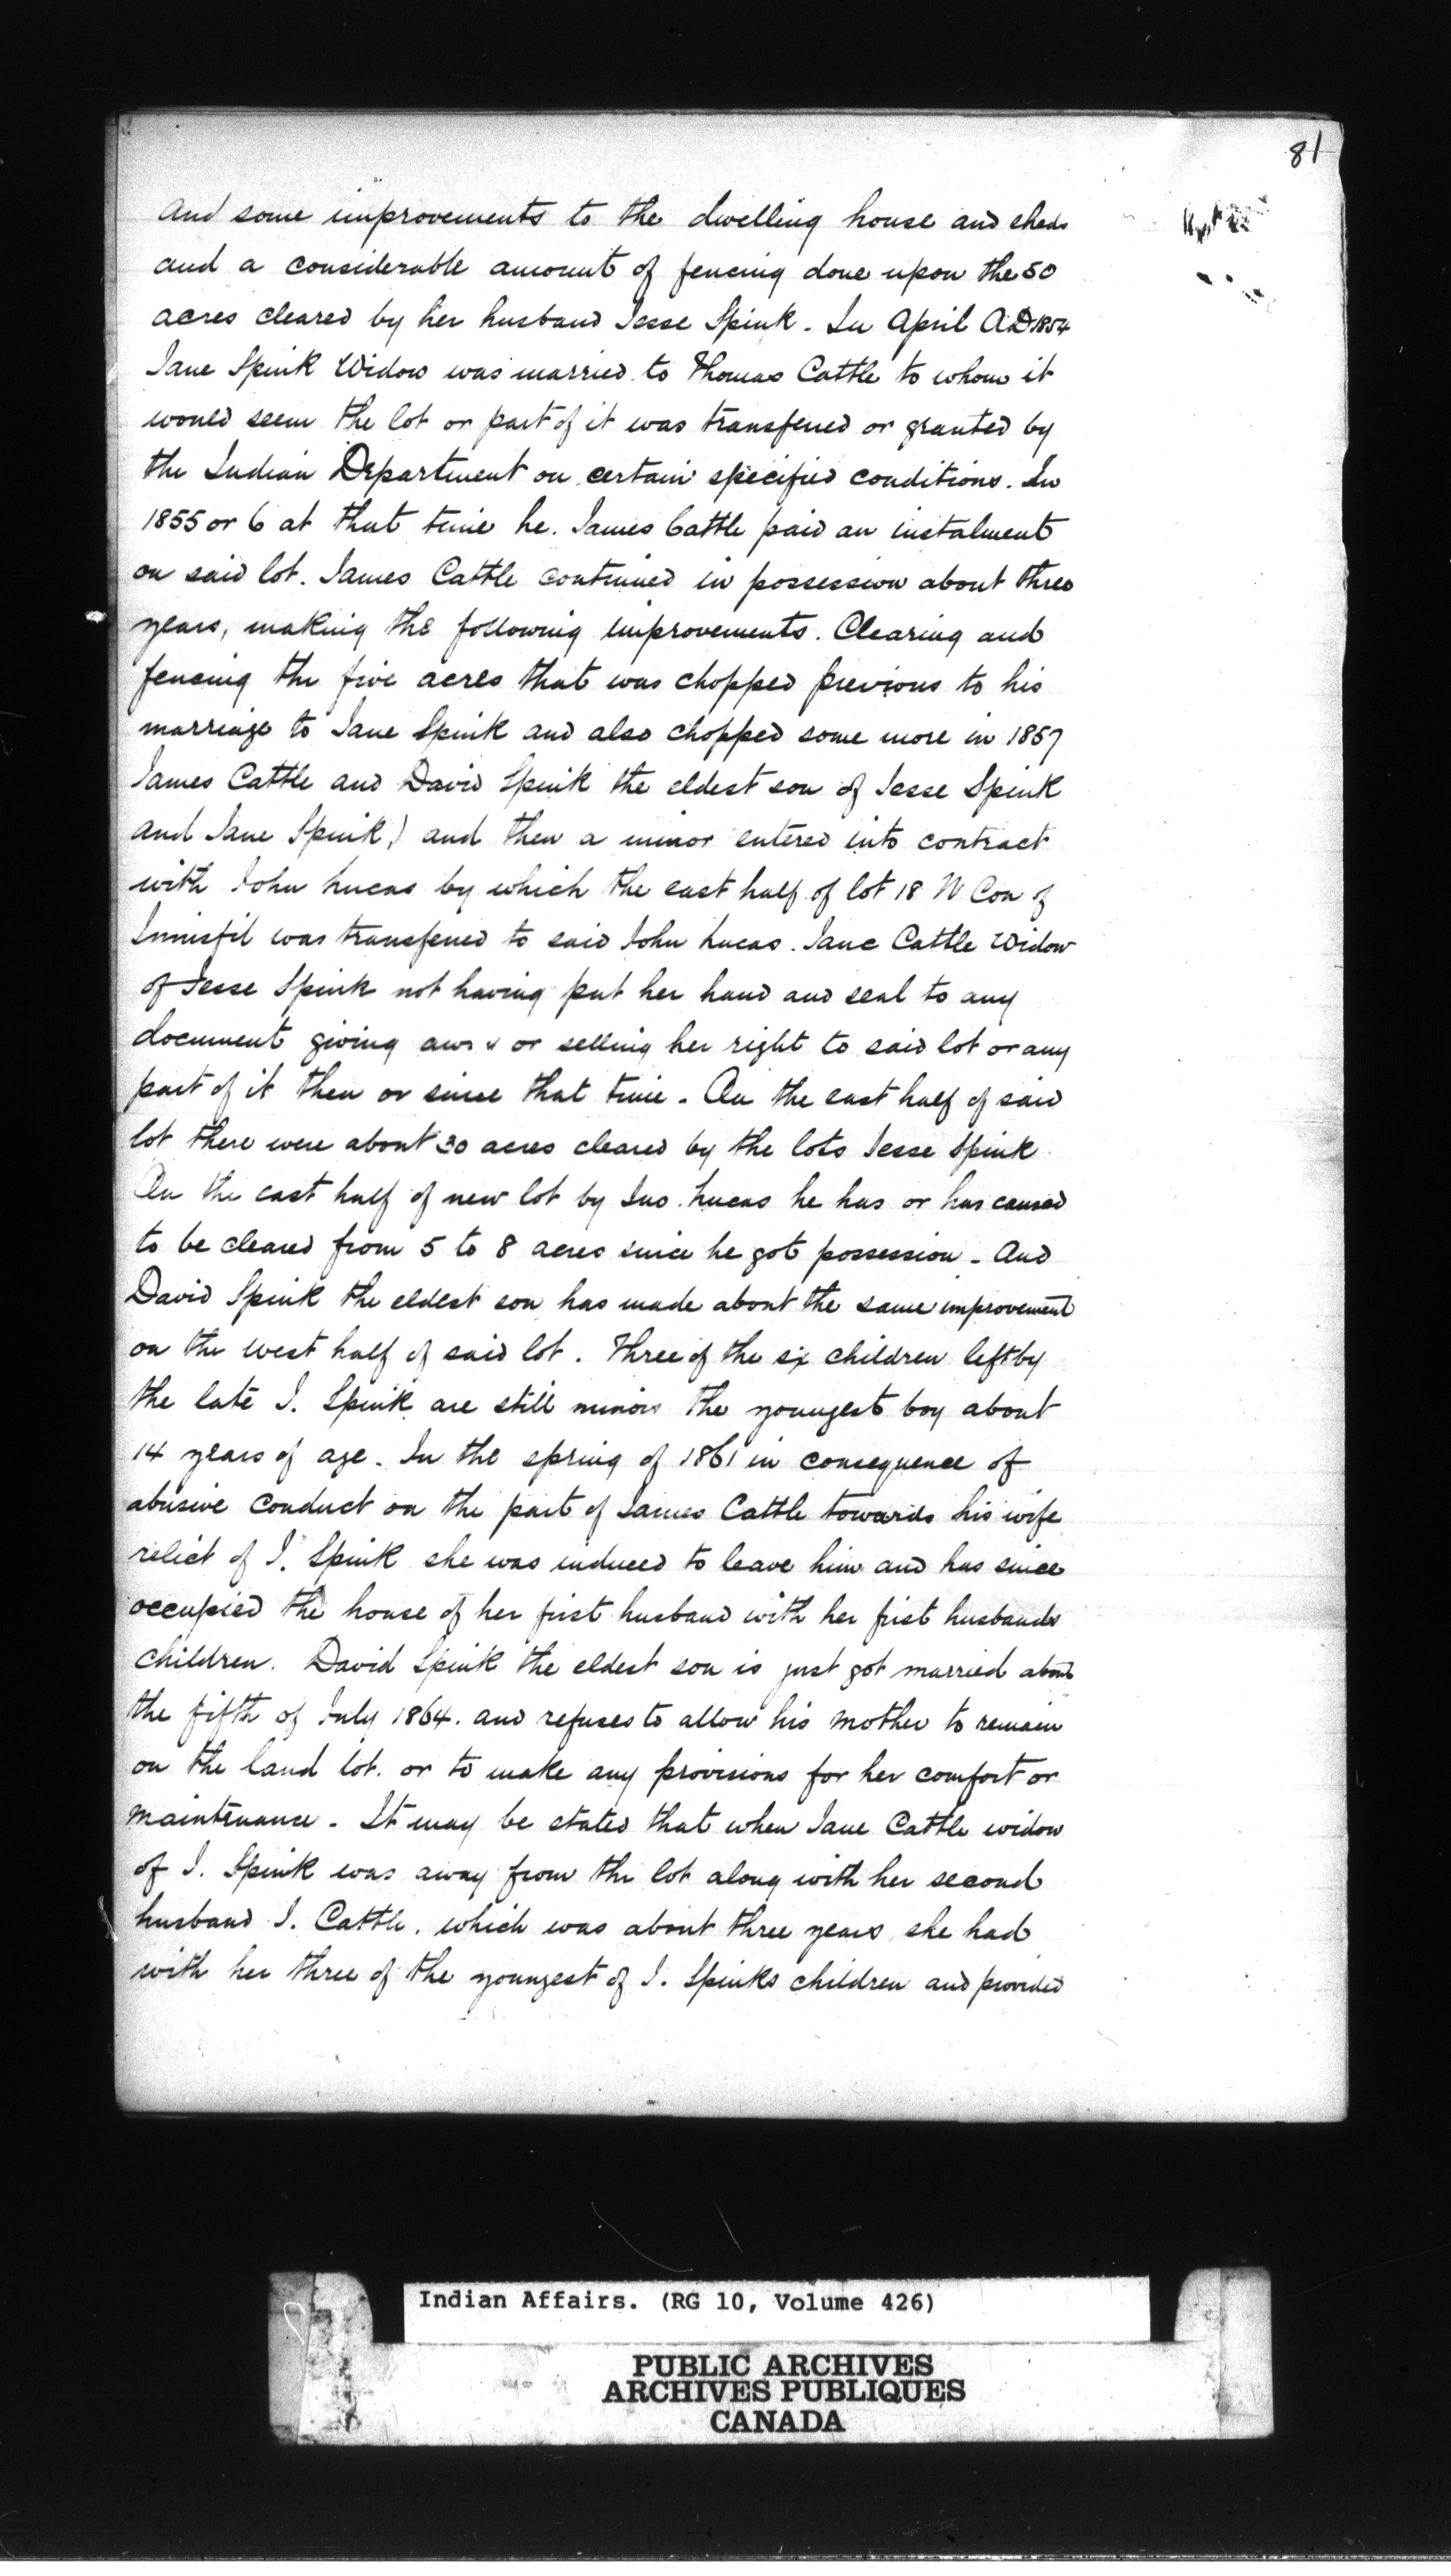 81
and some improvements to the dwelling house and sheds
and a considerable amount of fencing done upon the 50
acres cleared by her husband Jesse Spink. In April A.D 1854
Jane Spink Widow was married to Thomas Cattle to whom it
would seem the lot or part of it was transfered or granted by
the Indian Department on certain specified conditions. In
1855 or 6 at that time he. James Cattle paid an instalment
on said lot. James Cattle continued in possession about three
years, making the following improvements. Clearing and
fencing the five acres that was chopped previous to his
marriage to Jane Spink and also chopped some more in 1857
James Cattle and David Spink the eldest son of Jesse Spink
and Jane Spink) and then a minor entered into contract
with John Lucas by which the east half of lot 18 N Con of
Innisfil was transfered to said John Lucas. Jane Cattle Widow
of Jesse Spink not having put her hand and seal to any
document giving away or selling her right to said lot or any
part of it then or since that time. On the east half of said
lot there were about 30 acres cleared by the lots Jesse Spink
On the east half of new lot by Jno. Lucas he has or has caused
to be cleared from 5 to 8 acres since he got possession. And
David Spink the eldest son has made about the same improvement
on the west half of said lot. Three of the six children left by
the late J. Spink are still minors the youngest boy about
14 years of age. In the spring of 1861 in consequence of
abusive conduct on the part of James Cattle towards his wife
relict of J. Spink she was induced to leave him and has since
occupied the house of her first husband with her first husbands
children. David Spink the eldest son is just got married about
the fifth of July 1864. and refuses to allow his mother to remain
on the land lot. or to make any provisions for her comfort or
maintenance. It may be stated that when Jane Cattle widow
of J. Spink was away from the lot along with her second
husband J. Cattle. which was about three years she had
with her three of the youngest of J. Spinks children and provided
Indian Affairs. (RG 10, Volume 426)
PUBLIC ARCHIVES
ARCHIVES PUBLIQUES
CANADA